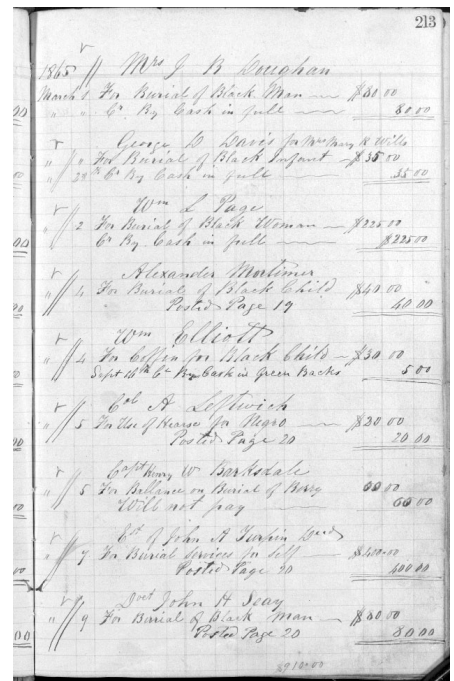 213
1865 // Mrs J B Doughan
March 1 For Burial of Black Man — $80.00
" " Cr By Cash in full — 80.00
George D Davis for Mrs Mary K Wills
" " For Burial of Black Infant — $35.00
" 28th Cr By Cash in full — 35.00
Wm L Page
" 2 For Burial of Black Woman — $225.00
Cr By Cash in full — $225.00
Alexander Mortimer
" 4 For Burial of Black Child $40.00
Posted Page 19 40.00
Wm Elliott
" 4 For Coffin for Black Child — $30.00
Sept 16th Cr By Cash in Green Backs 5.00
Col A Leftwich
" 5 For Use of Hearse for Negro — $20.00
Posted Page 20 20.00
Capt Henry W Barksdale
" 5 For Ballance on Burial of Berry 60.00
Will not pay — 60.00
Est of John A Turpin Decd
" 7 For Burial Services for Self — $400.00
Posted Page 20 400.00
Doct John H Seay
" 9 For Burial of Black Man — $80.00
Posted Page 20 80.00